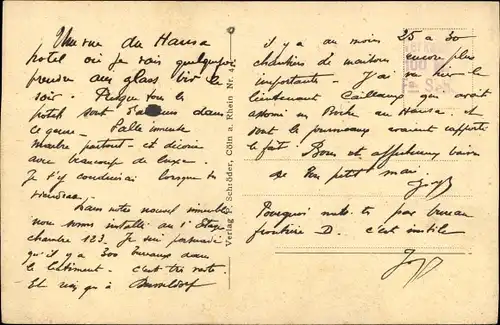 Une vue du Hansa
hotel où je vais quelquefois
prendre une glass bir le
soir. Presque tous les
hotels sont d'ailleurs dans
ce genre. Salle immense
marbre partout et décorée
avec beaucoup de luxe.
Je t'y conduirai lorsque tu
viendras.
Dans notre nouvel immeuble
nous sommes installés au 1er Etage
chambre 123. Je suis persuadé
qu'il y a 300 bureaux dans
le bâtiment. c'est très vaste.
Et rien qu'à Dusseldorf
Verlag P. Schröder, Cöln a. Rhein Nr. 4
il y a au moins 25 à 30
chantiers de maisons encore plus
importants - J'ai vu hier le
lieutenant Cailleaux qui avait
assommé un Boche au Hansa et
dont les journaux avaient rapporté
le fait. Bons et affectueux baisers
de ton petit mari
Pourquoi mets-tu par bureau
frontière D. c'est inutile